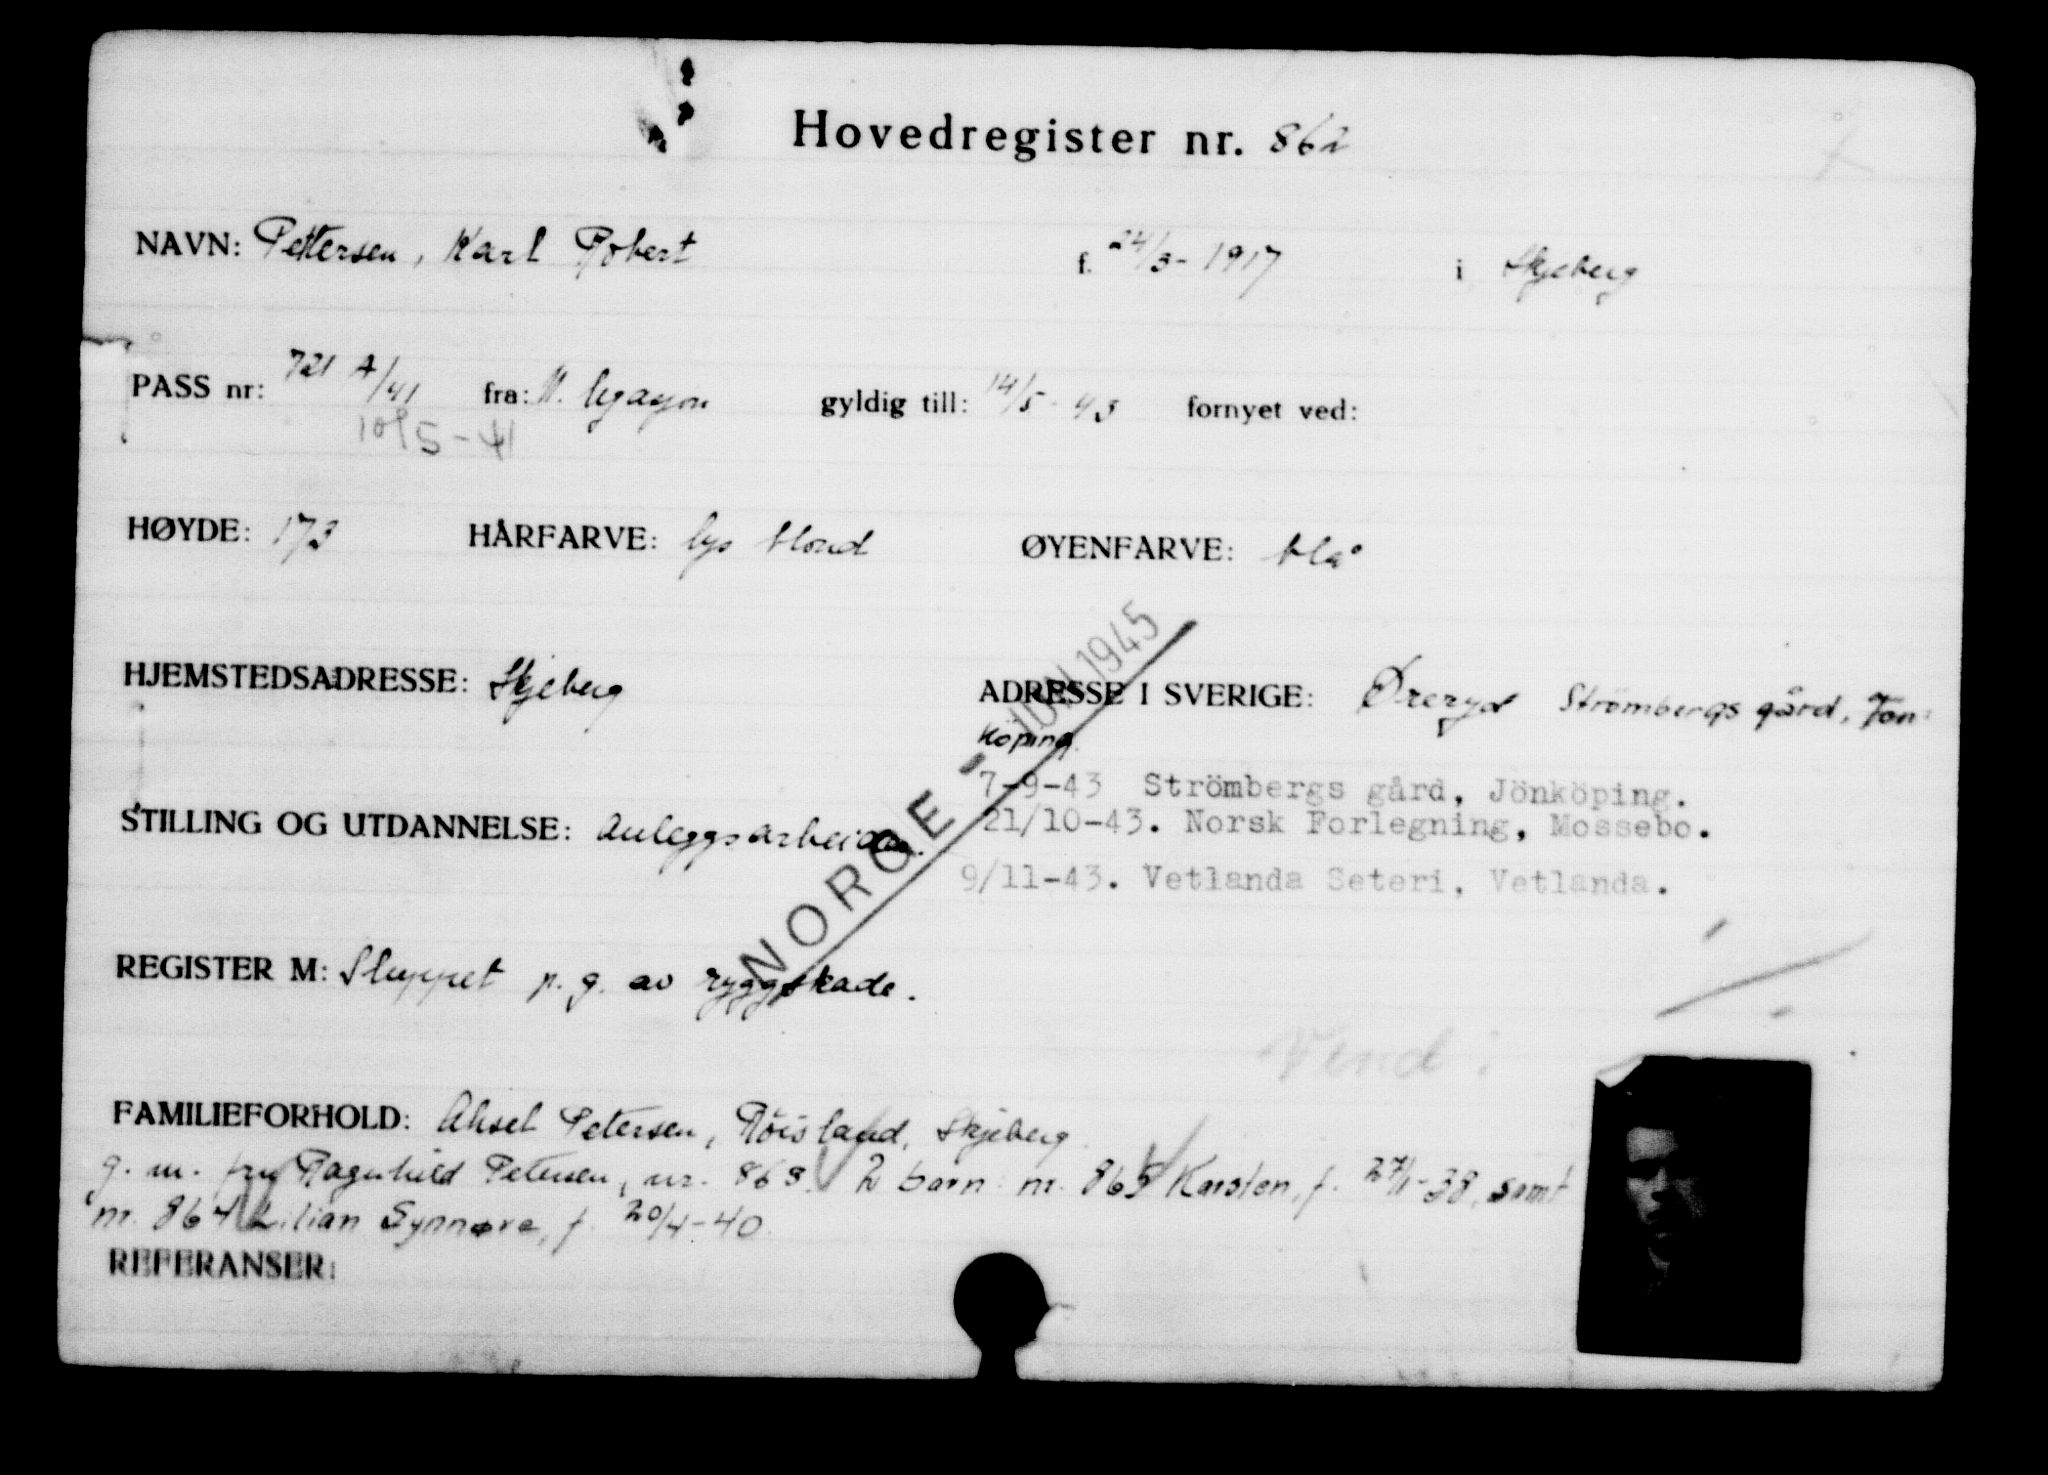 Hovedregister nr. 862
NAVN: Pettersen, Karl Robert f. 24/3-1917 i Skjeberg
PASS nr: 721 A/41 fra: N. legasjon gyldig till: 14/5-43 fornyet ved:
10/5-41
HØYDE: 173 HÅRFARVE: lys blond ØYENFARVE: blå
HJEMSTEDSADRESSE: Skjeberg ADRESSE I SVERIGE: Øreryd Strömbergs gård, Jön-
köping.
7-9-43 Strömbergs gård, Jönköping.
STILLING OG UTDANNELSE: Anleggsarbeider. 21/10-43. Norsk Forlegning, Mossebo.
9/11-43. Vetlanda Seteri, Vetlanda.
NORGE - JUNI 1945
REGISTER M: Sluppet p.g. av ryggskade.
Vend:
FAMILIEFORHOLD: Aksel Petersen, Röisland, Skjeberg
g. m. fru Ragnhild Petersen, nr. 863. 2 barn: nr. 865 Karsten, f. 27/1-38, samt
nr. 864 Lilian Synnøve, f. 20/4-40.
REFERANSER: